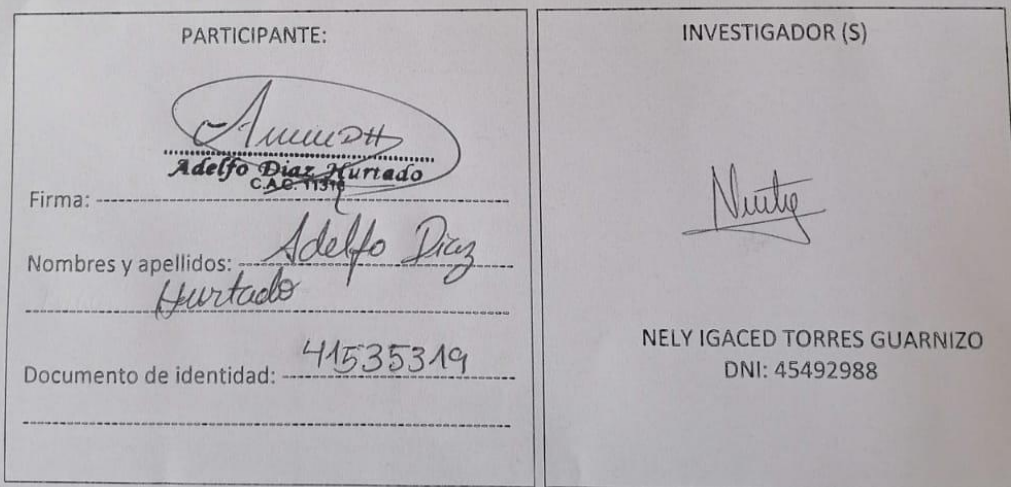 PARTICIPANTE:
Adelfo Diaz Hurtado
C.A.C. 11316
Firma:
Nombres y apellidos: Adelfo Diaz
Hurtado
Documento de identidad: 41535319
INVESTIGADOR (S)
NELY IGACED TORRES GUARNIZO
DNI: 45492988